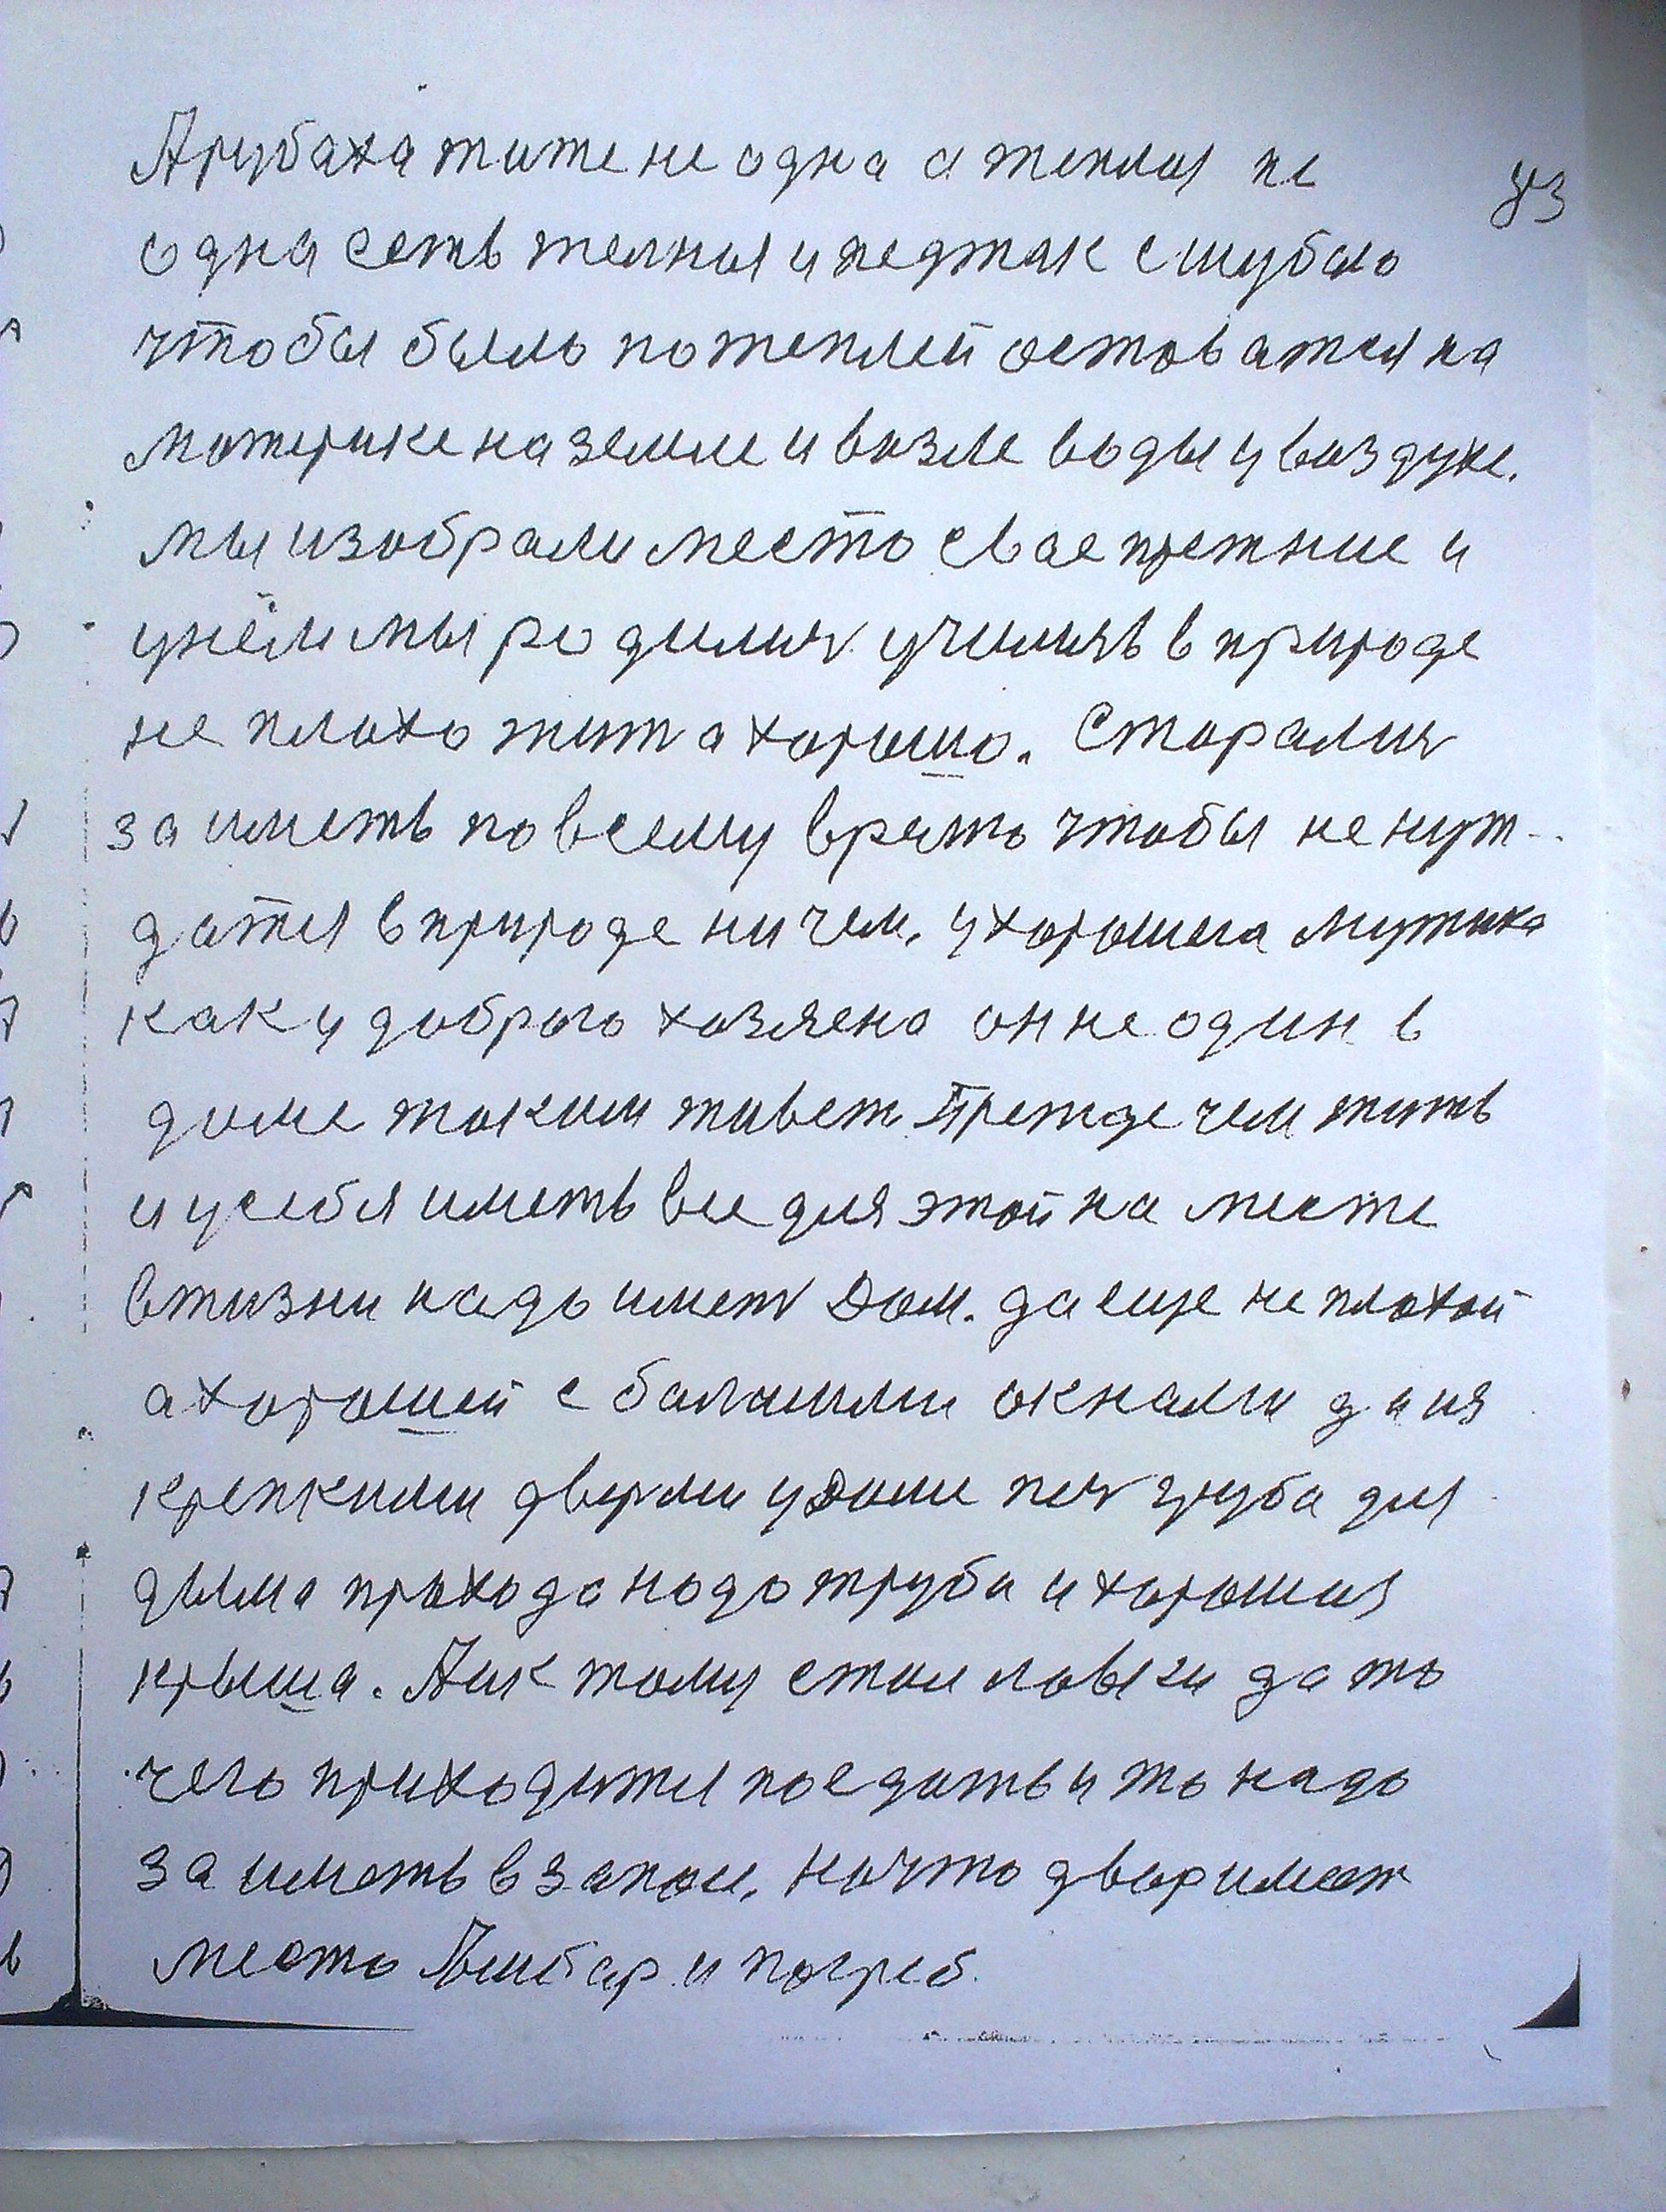 А рубаха тиже не одна а теплая не
83
одна есть телная и педжак с шубою
чтобы было потеплей оставатся на
материке на земле и возле воды у воздухе.
мы изобрали место свае прежние и
у нём мы родилис училизь в природе
не плохо жит а хорошо. Старалис
заиметь по всему врето чтобы ненуж-
датя в природе ни чем, у хорошега мужика
как у доброго хозяена он не один в
доме таким живет Прежде чем жить
и у себя иметь все для этой на месте
в жизни надо имет Дом. да еще не плохой
а хороший с балашими окнами да из
крепкими дверми у Доме печ груба для
дыма прохода надо труба и хорошия
крыша. А ик тому стол лавки да то
чего приходитя поедать и то надо
заиметь в запои, на что двор имеет
место Амбар и погреб.